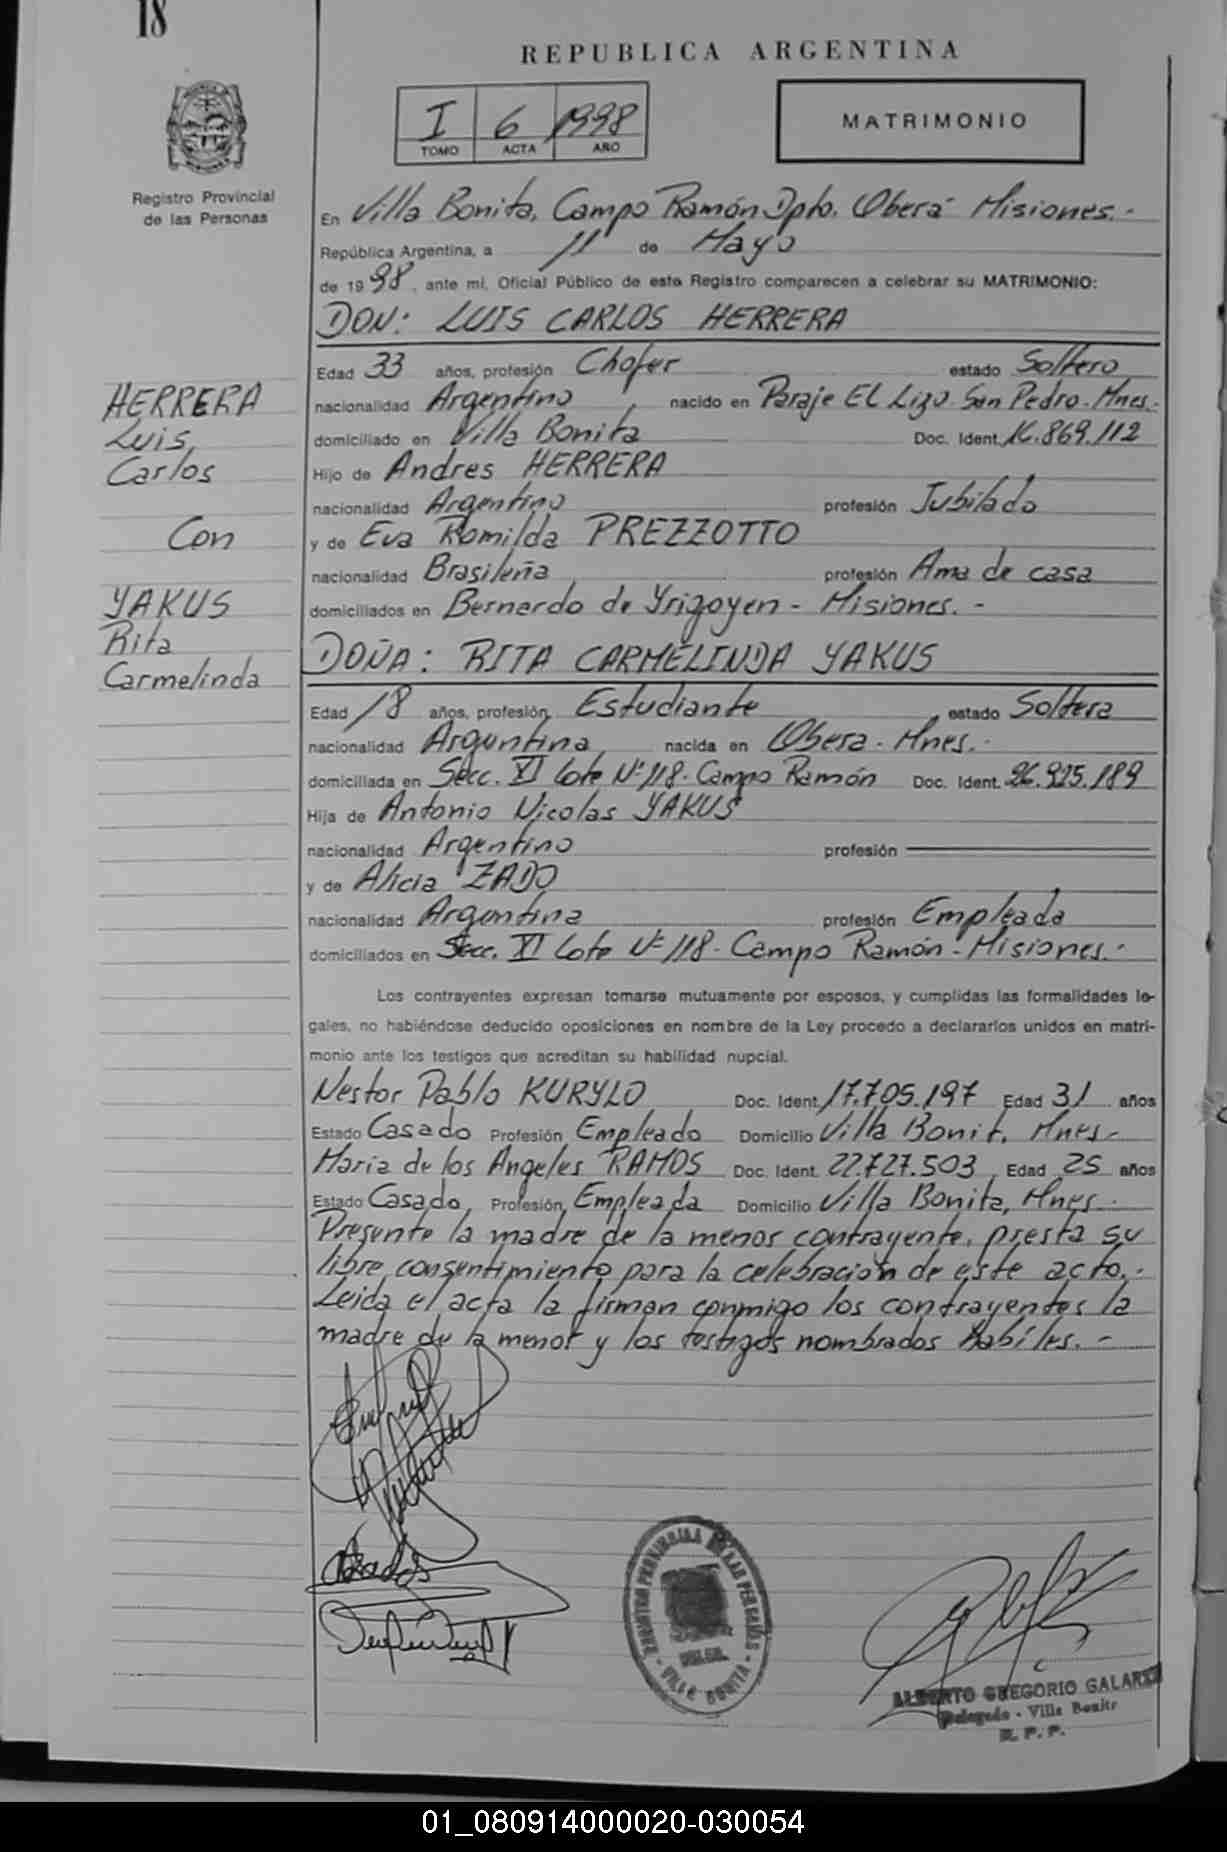 18
REPUBLICA ARGENTINA
I 6 1998
TOMO ACTA AÑO
MATRIMONIO
Registro Provincial
de las Personas
En Villa Bonita, Campo Ramón Dpto. Oberá Misiones.-
República Argentina, a 11 de Mayo
de 1998, ante mí, Oficial Público de este Registro comparecen a celebrar su MATRIMONIO:
DON: LUIS CARLOS HERRERA
Edad 33 años, profesión Chofer estado Soltero
nacionalidad Argentino nacido en Paraje El Lizo. San Pedro. Mnes.-
domiciliado en Villa Bonita Doc. Ident. 16.869.112
Hijo de Andres HERRERA
nacionalidad Argentino profesión Jubilado
y de Eva Romilda PREZZOTTO
nacionalidad Brasileña profesión Ama de casa
domiciliados en Bernardo de Yrigoyen - Misiones. -
DOÑA: RITA CARMELINDA YAKUS
Edad 18 años, profesión Estudiante estado Soltera
nacionalidad Argentina nacida en Obera. Mnes.-
domiciliada en Secc. XI Lote Nº 118. Campo Ramón Doc. Ident. 26.925.189
Hija de Antonio Nicolas YAKUS
nacionalidad Argentino profesión
y de Alicia ZADO
nacionalidad Argentina profesión Empleada
domiciliados en Secc. XI Lote Nº 118. Campo Ramón - Misiones.-
Los contrayentes expresan tomarse mutuamente por esposos, y cumplidas las formalidades le-
gales, no habiéndose deducido oposiciones en nombre de la Ley procedo a declararlos unidos en matri-
monio ante los testigos que acreditan su habilidad nupcial.
Nestor Pablo KURYLO Doc. Ident. 17.705.197 Edad 31 años
Estado Casado Profesión Empleado Domicilio Villa Bonit. Mnes.-
Maria de los Angeles RAMOS Doc. Ident. 22.727.503 Edad 25 años
Estado Casada Profesión Empleada Domicilio Villa Bonita, Mnes.-
Presente la madre de la menor contrayente, presta su
libre consentimiento para la celebración de este acto.-
Leida el acta la firman conmigo los contrayentes la
madre de la menor y los testigos nombrados habiles.-
HERRERA
Luis
Carlos
Con
YAKUS
Rita
Carmelinda
REGISTRO PROVINCIAL DE LAS PERSONAS
- VILLA BONITA -
ALBERTO GREGORIO GALARZA
Delegado - Villa Bonita
R. P. P.
01_080914000020-030054